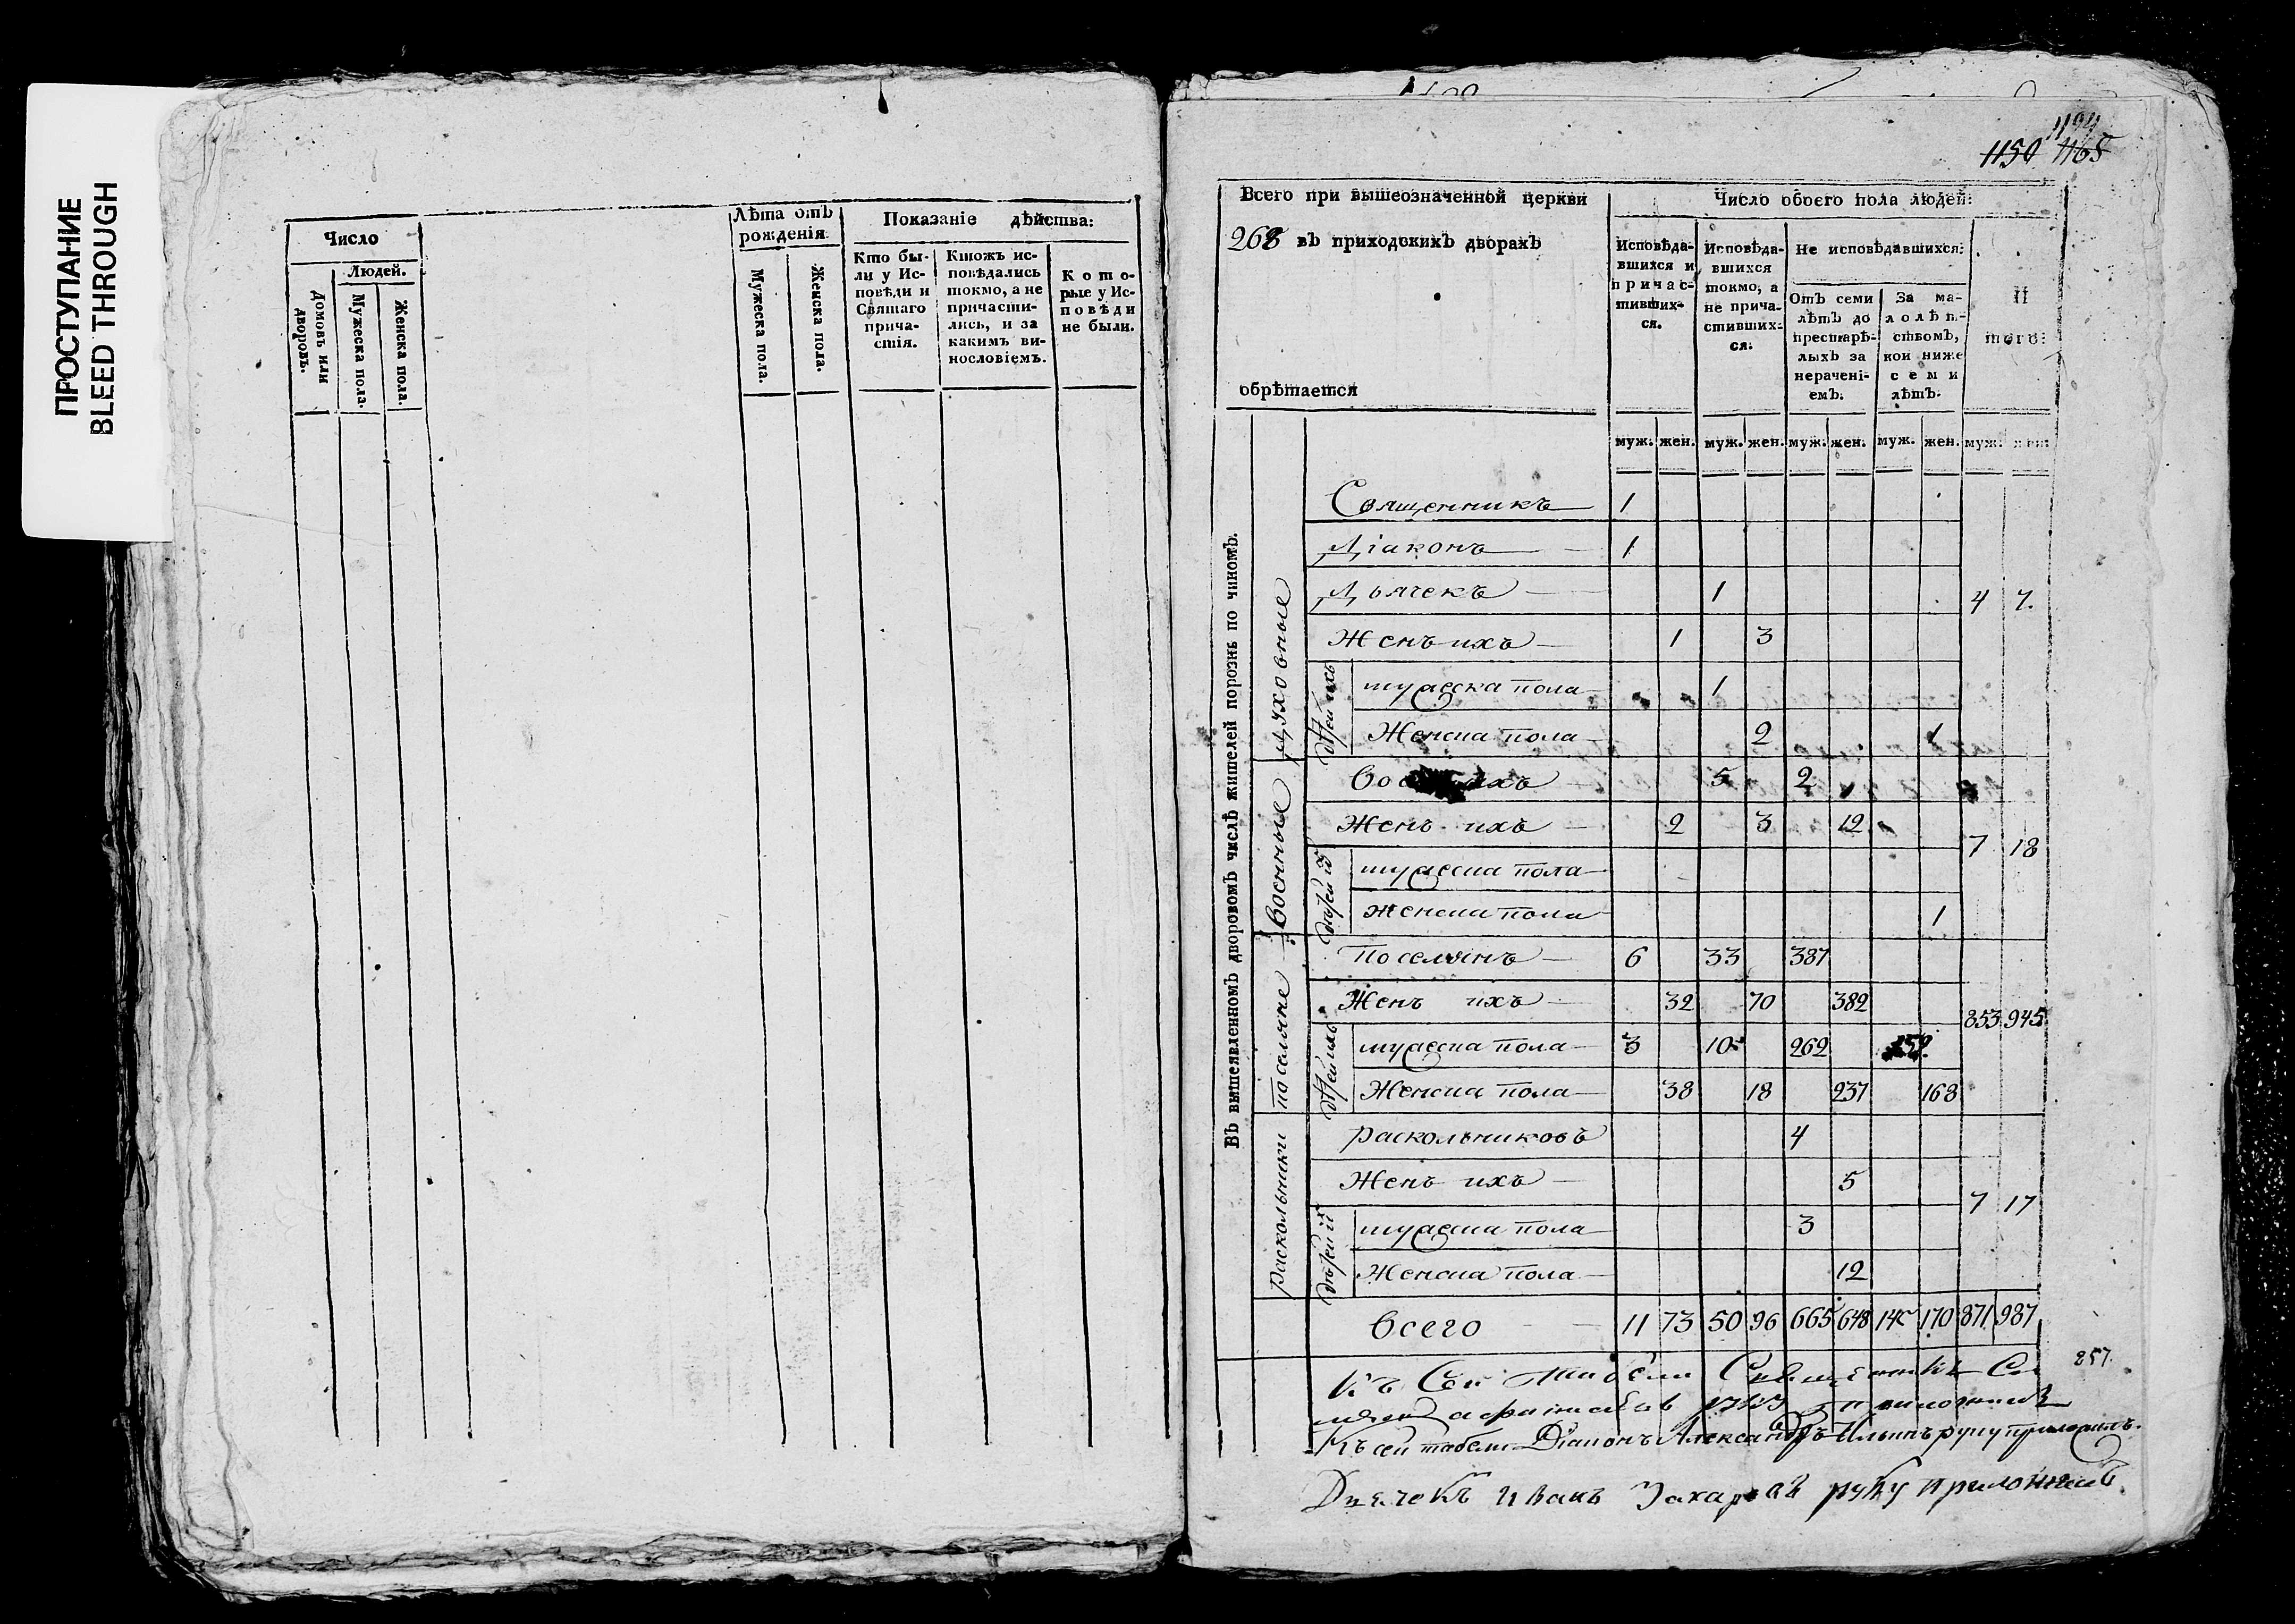 ПРОСТУПАНИЕ
BLEED THROUGH
Число
Людей.
Домовъ или дворовъ.
Мужеска пола.
Женска пола.
Лѣта отъ рожденія
Мужеска пола.
Женска пола.
Показаніе дѣйства:
Кто бы-
ли у Ис-
повѣди и
Святаго
прича-
стія.
Ктожъ ис-
повѣдались
токмо, а не
причасти-
лись, и за
какимъ ви-
нословіемъ.
К о т о-
рые у Ис-
п о в ѣ д и
не были.
1194
1150 1165
Всего при вышеозначенной церкви
268 въ приходскихъ дворахъ
обрѣтается
Число обоего пола людей:
Исповѣда-
вшихся и
п р и ч а с-
тивших-
ся.
Исповѣда-
вшихся
токмо, а
не прича-
стивших-
ся.
Не исповѣдавшихся:
Отъ семи
лѣтъ до
престарѣ-
лыхъ за
нерачені-
емъ.
За ма-
л о л ѣ т-
ствомъ,
кои ниже
с е м и
лѣтъ.
И
того:
муж. жен. муж. жен. муж. жен. муж. жен. муж. жен.
Въ вышеявленномъ дворовомъ числѣ жителей порознь по чиномъ.
Духовные
Священникъ 1
Діаконъ 1
Дьячекъ 1 4 7.
Женъ ихъ 1 3
Дѣтей ихъ
мужеска пола 1
Женска пола 2 1
Военные
5 2
Женъ ихъ 2 3 12 7 18
Дѣтей их
мужеска пола
женска пола 1
Поселяне
Поселянъ 6 33 387
Женъ ихъ 32 70 382 853 945
Дѣтей ихъ
мужеска пола 3 10 262
Женска пола 38 18 237 168
Раскольники
Раскольниковъ 4
Женъ ихъ 5 7 17
Дѣтей их
мужеска пола 3
Женска пола 12
Всего 11 73 50 96 665 648 170 871 987
857.
Къ сей табели Священникъ
Къ сей табели Діаконъ Александръ Ильинъ руку приложилъ.
Дьячекъ Иванъ Захаровъ руку приложилъ